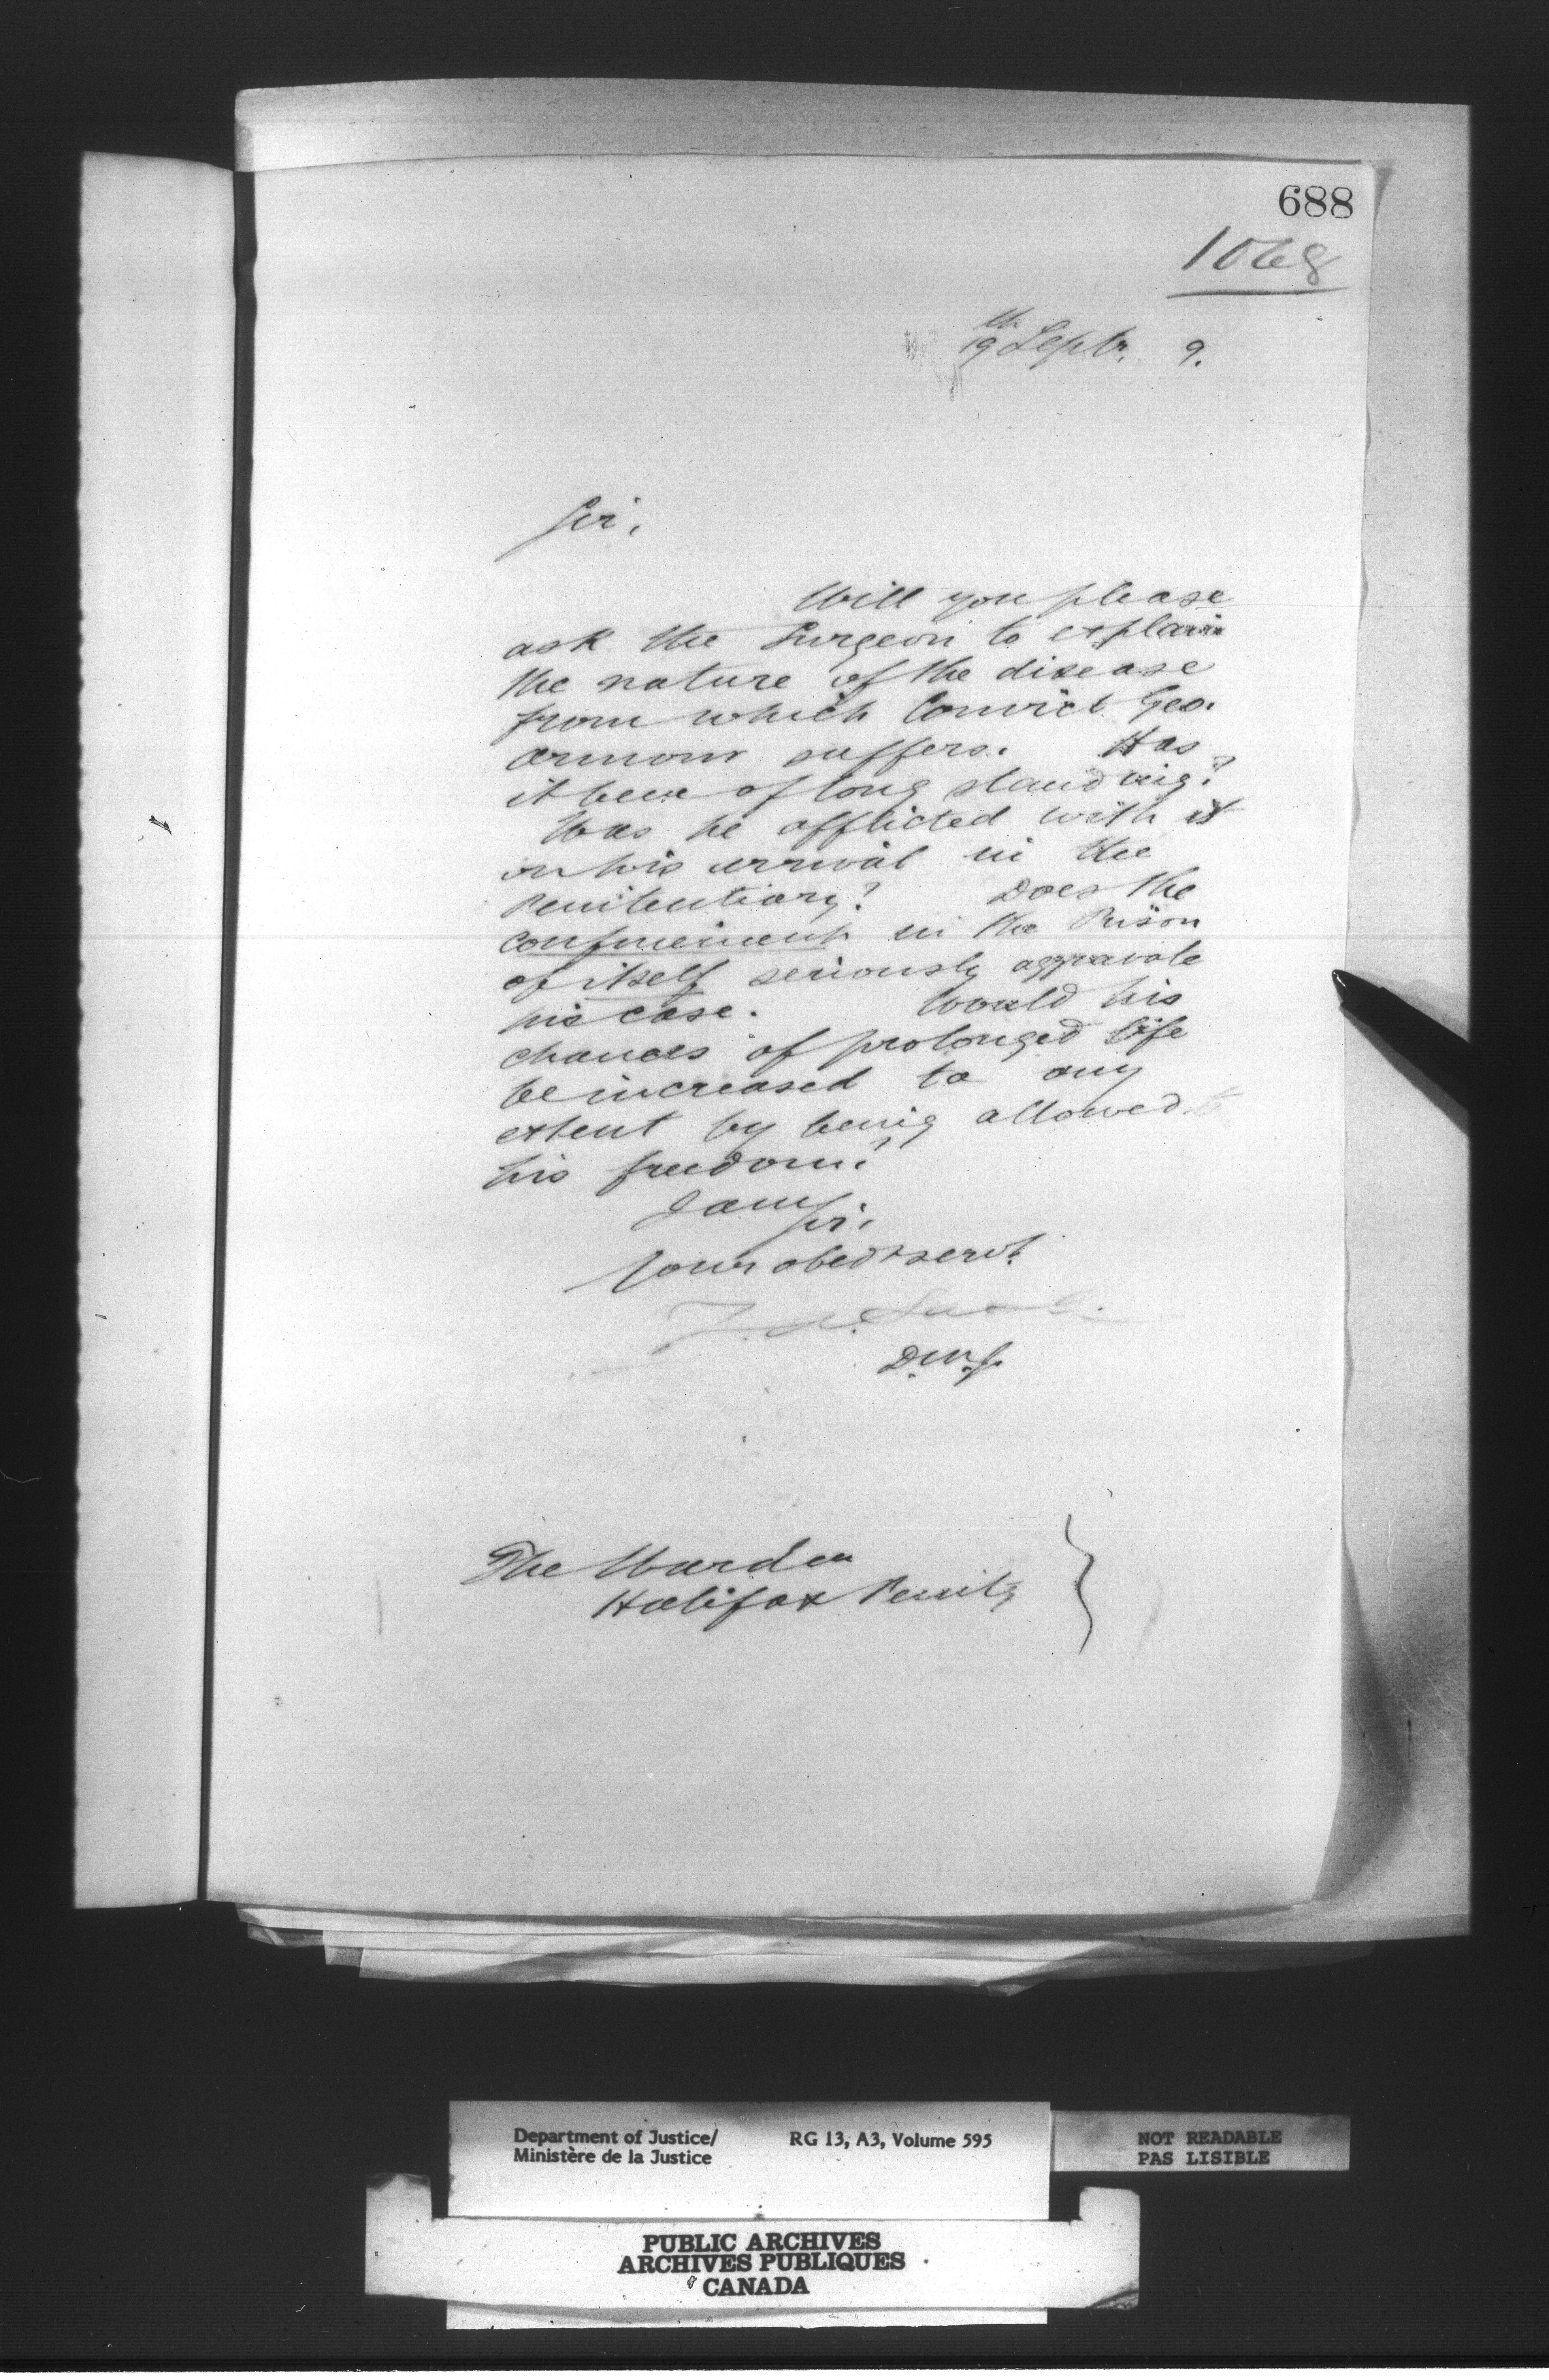 688
1068
19th Septr. 9.
Sir,
Will you please
ask the Surgeon to explain
the nature of the disease
from which Convict Geo.
Armour suffers. Has
it been of long standing?
Was he afflicted with it
on his arrival in the
Penitentiary? Does the
confinement in the Prison
of itself seriously aggravate
his case. Would his
chances of prolonged life
be increased to any
extent by being allowed
his freedom?
I am
Sir,
Your obedt servt.
D.M.J.
The Warden
Halifax Penity
Department of Justice/
Ministère de la Justice
RG 13, A3, Volume 595
NOT READABLE
PAS LISIBLE
PUBLIC ARCHIVES
ARCHIVES PUBLIQUES
CANADA